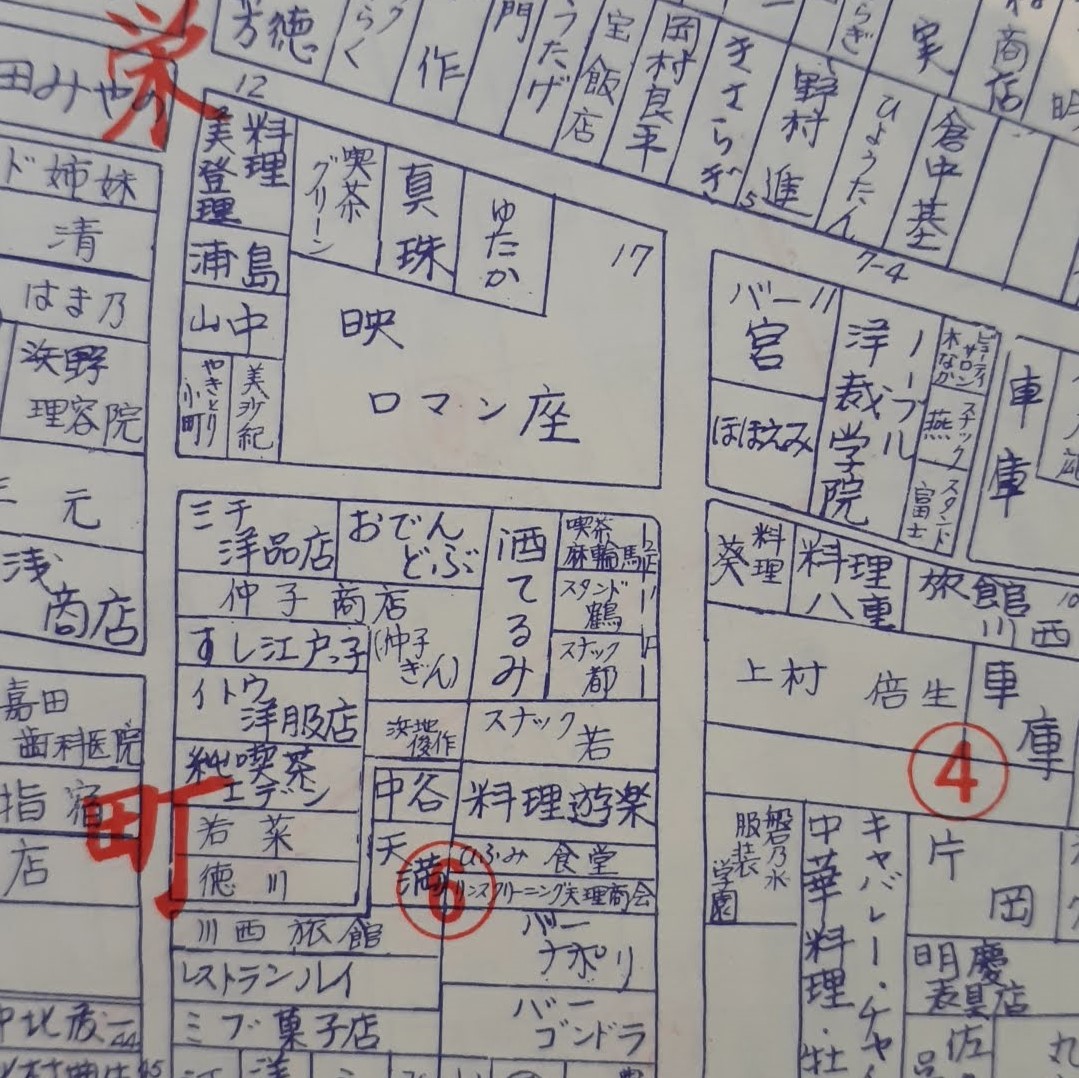 芳徳
らく
作
門
うたげ
宝飯店
岡村良平
きさらぎ
5
野村進
ひょうたん
実
倉中基
商店
明
7-4
栄
田みやの
12
ド姉妹
清
はま乃
浜野
理容院
三元
浅
商店
嘉田
歯科医院
指宿
店
中北
44
45
料理
美登理
喫茶
グリーン
真珠
ゆたか
17
浦島
山中
やきとり
小町
美沙紀
映
ロマン座
バー
宮
ほほえみ
ノーブル
洋裁学院
ビューティ
サロン
スナック
燕
スタンド
富士
車庫
三千
洋品店
おでん
どぶ
酒てるみ
喫茶
麻輪駒
スタンド
鶴
スナック
都
仲子商店
(仲子
ぎん)
すし江戸っ子
イトウ
洋服店
浜地
俊作
スナック
若
純喫茶
エデン
中谷
料理遊楽
若菜
徳川
天満
ひふみ食堂
リンスクリーニング天理商会
⑥
町
川西旅館
バー
ナポリ
レストランルイ
ミブ菓子店
バー
ゴンドラ
料理
葵
料理
八重
旅館
川西
10
上村倍生
車庫
④
磐乃水
服装
学園
中華料理・牡
キャバレー・チャ
片岡
明慶
表具店
佐
丸